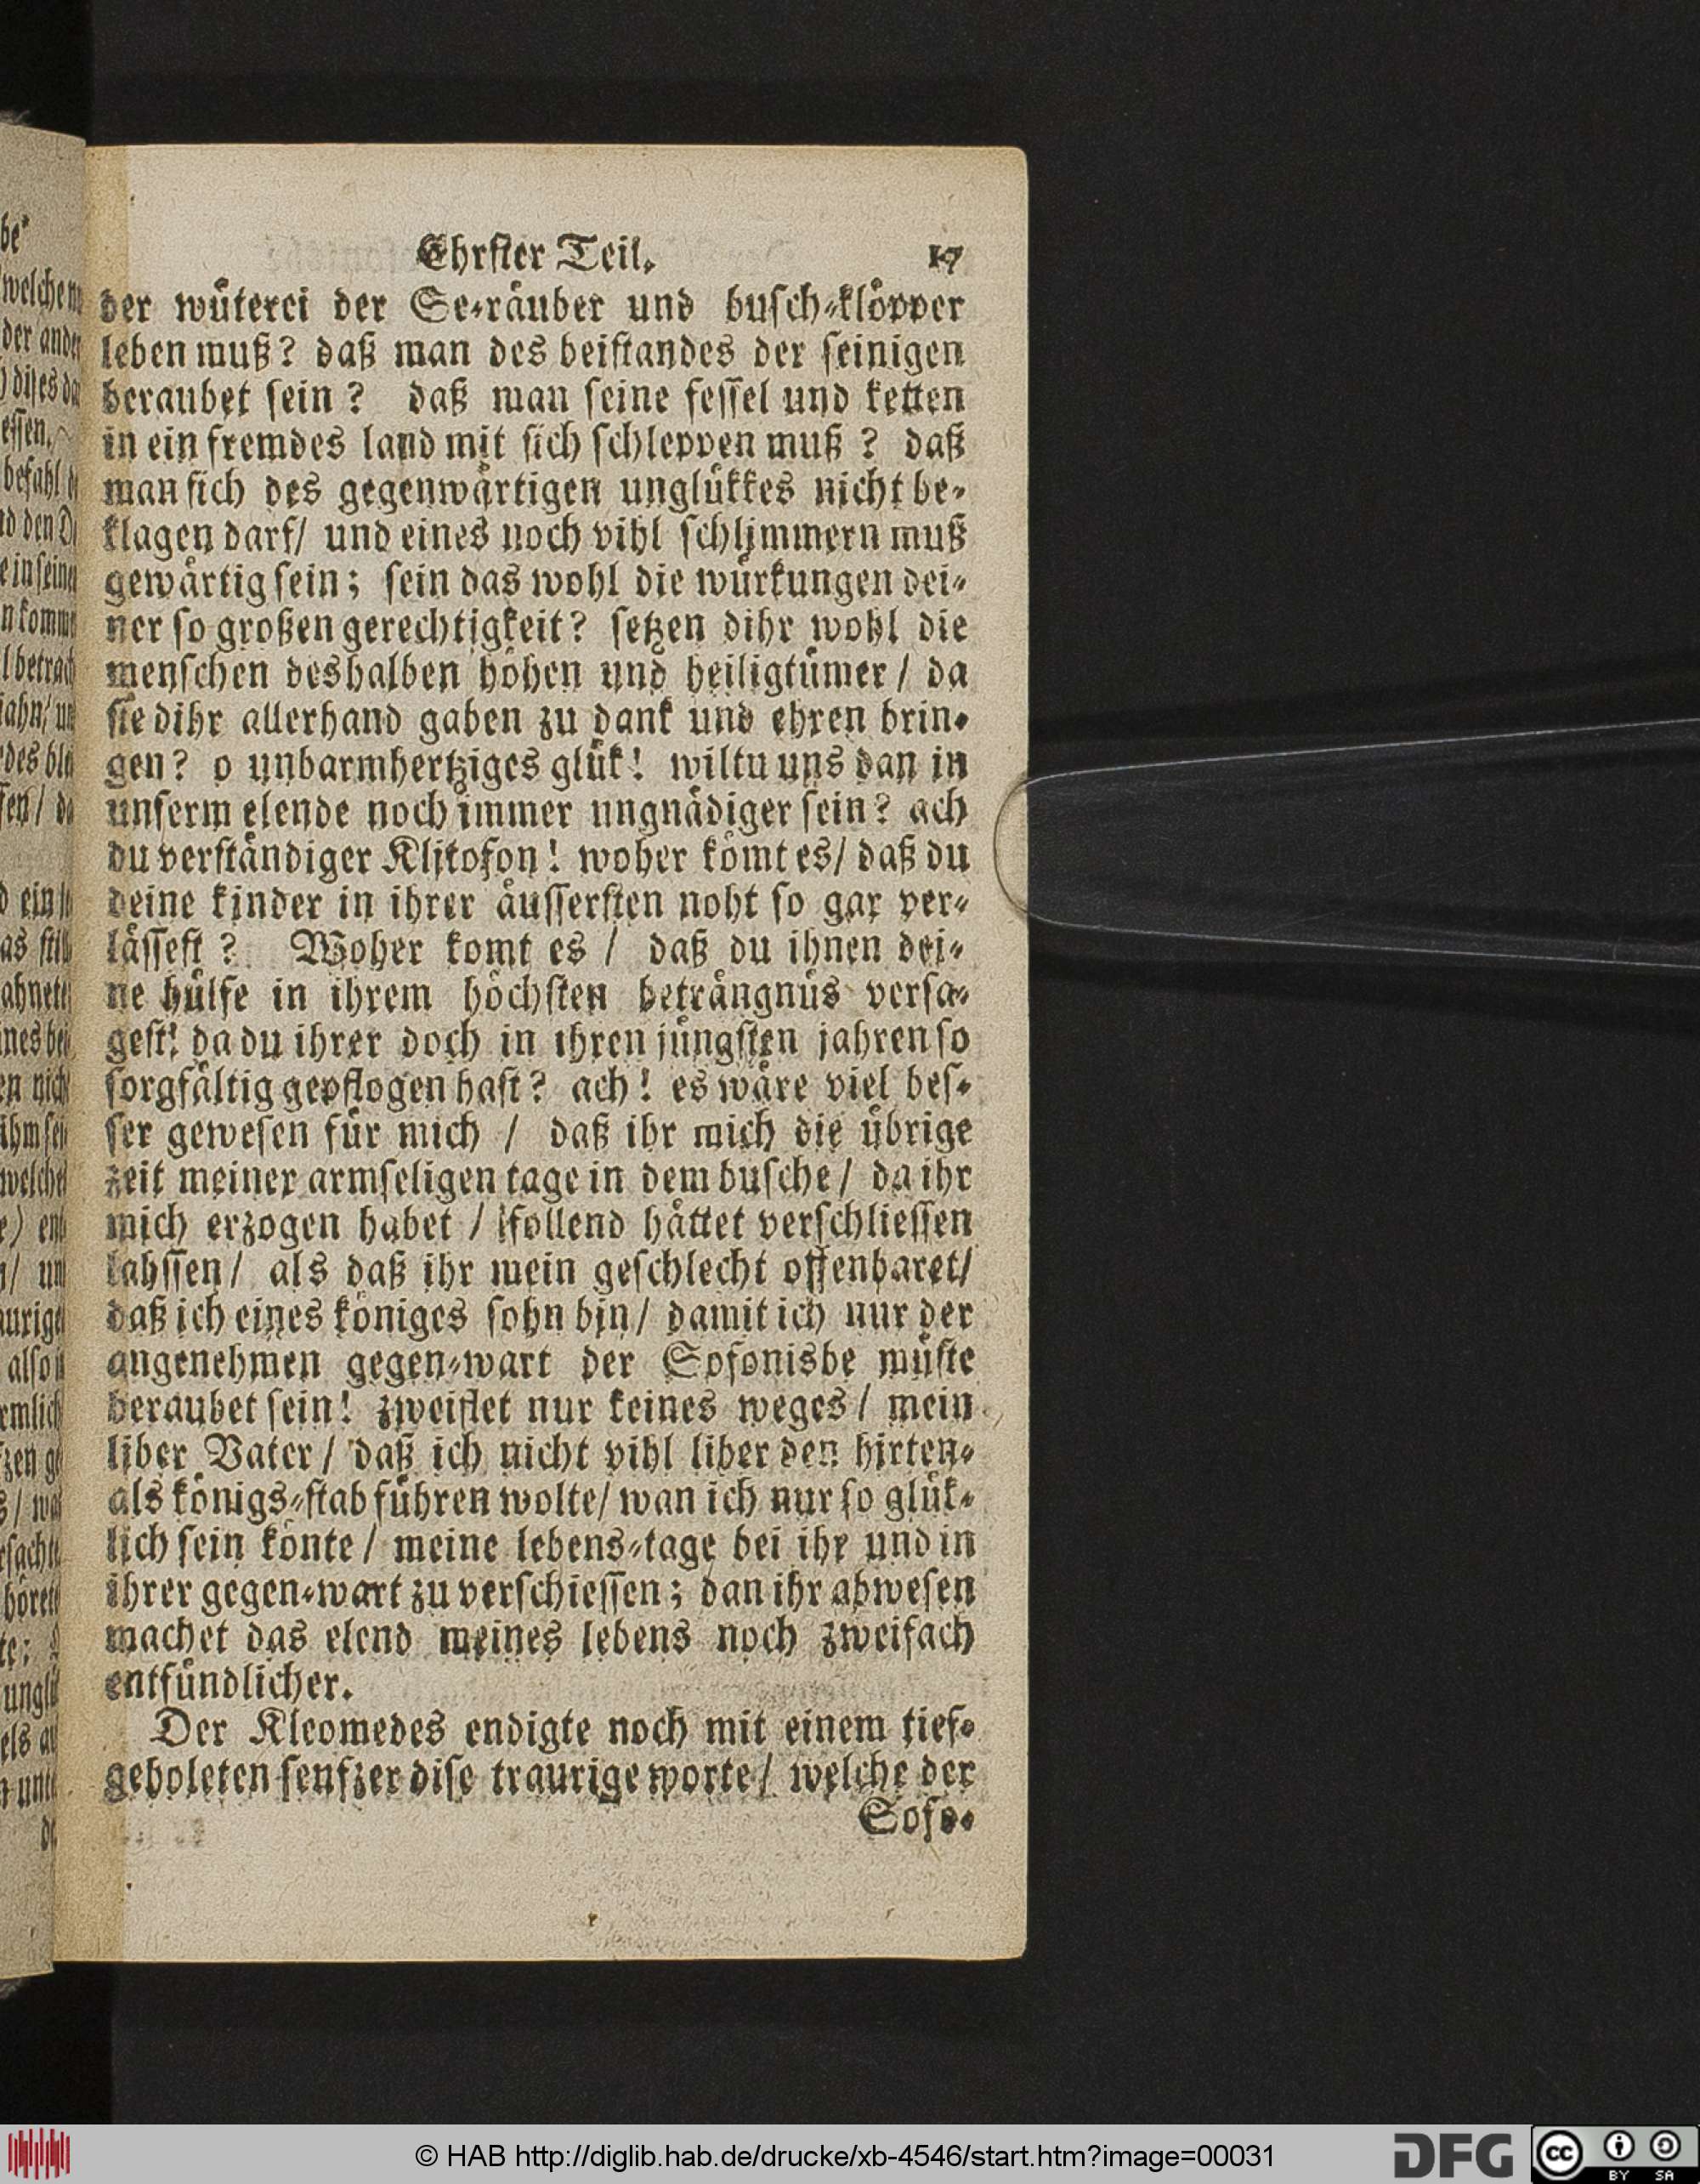 Ehrster Teil. 17
der wuͤterei der Se-raͤuber und busch-kloͤpper
leben muß? daß man des beistandes der seinigen
beraubet sein? daß man seine fessel und ketten
in ein fremdes land mit sich schleppen muß? daß
man sich des gegenwaͤrtigen ungluͤkkes nicht be-
klagen darf/ und eines noch vihl schlimmern muß
gewaͤrtig sein; sein das wohl die wuͤrkungen dei-
ner so großen gerechtigkeit? setzen dihr wohl die
menschen deshalben hoͤhen und heiligtuͤmer/ da
sie dihr allerhand gaben zu dank und ehren brin-
gen? o unbarmhertziges gluͤk! wiltu uns dan in
unserm elende noch immer ungnaͤdiger sein? ach
du verstaͤndiger Klitofon! woher koͤmt es/ daß du
deine kinder in ihrer aͤussersten noht so gar ver-
laͤssest? Woher komt es/ daß du ihnen dei-
ne huͤlfe in ihrem hoͤchsten betraͤngnuͤs versa-
gest! da du ihrer doch in ihren juͤngsten jahren so
sorgfaͤltig gepflogen hast? ach! es waͤre viel bes-
ser gewesen fuͤr mich/ daß ihr mich die uͤbrige
zeit meiner armseligen tage in dem busche/ da ihr
mich erzogen habet/ follend haͤttet verschliessen
lahssen/ als daß ihr mein geschlecht offenbaret/
daß ich eines koͤniges sohn bin/ damit ich nur der
angenehmen gegen-wart der Sofonisbe muͤste
beraubet sein! zweiflet nur keines weges/ mein
liber Vater/ daß ich nicht vihl liber den hirten-
als koͤnigs-stab fuͤhren wolte/ wan ich nur so gluͤk-
lich sein koͤnte/ meine lebens-tage bei ihr und in
ihrer gegen-wart zu verschiessen; dan ihr abwesen
machet das elend meines lebens noch zweifach
entfuͤndlicher.
Der Kleomedes endigte noch mit einem tief-
geholeten seufzer dise traurige worte/ welche der
Sofo-
© HAB http://diglib.hab.de/drucke/xb-4546/start.htm?image=00031
DFG
cc BY SA